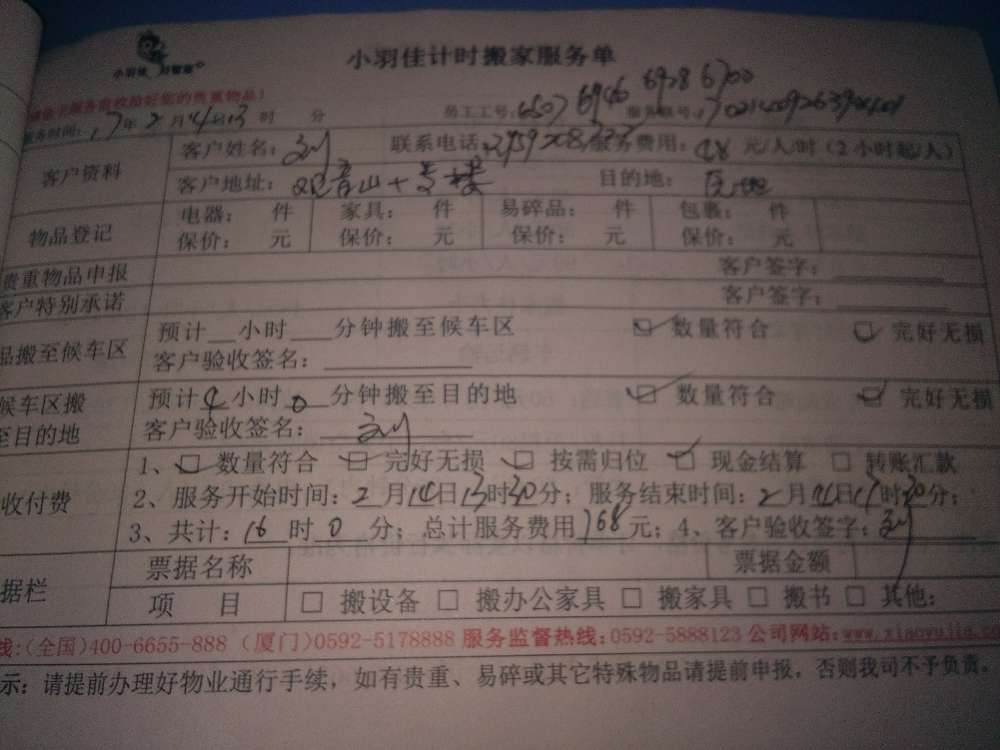 小羽佳计时搬家服务单
服务时间：17年2月14日13时 分 员工工号：6507 6946 6928 6700 服务账号：
客户资料 客户姓名：刘 联系电话： 服务费用：48元/人/时（2小时起/人）
客户地址：观音山十号楼 目的地：
物品登记 电器： 件 家具： 件 易碎品： 件 包裹： 件
保价： 元 保价： 元 保价： 元 保价： 元
贵重物品申报 客户签字：
客户特别承诺 客户签字：
品搬至候车区 预计__小时___分钟搬至候车区 ☑数量符合 ☑完好无损
客户验收签名：
候车区搬至目的地 预计4小时0分钟搬至目的地 ☑数量符合 ☑完好无损
客户验收签名：刘
收付费 1、☑数量符合 ☑完好无损 ☑按需归位 ☑现金结算 □转账汇款
2、服务开始时间：2月14日13时30分；服务结束时间：2月14日17时30分；
3、共计：16时0分；总计服务费用768元；4、客户验收签字：刘
据栏 票据名称 票据金额
项 目 □搬设备 □搬办公家具 □搬家具 □搬书 □其他：
线：（全国）400-6655-888 （厦门）0592-5178888 服务监督热线：0592-5888123 公司网站：www.xiaoyujia.c
示：请提前办理好物业通行手续，如有贵重、易碎或其它特殊物品请提前申报，否则我司不予负责。